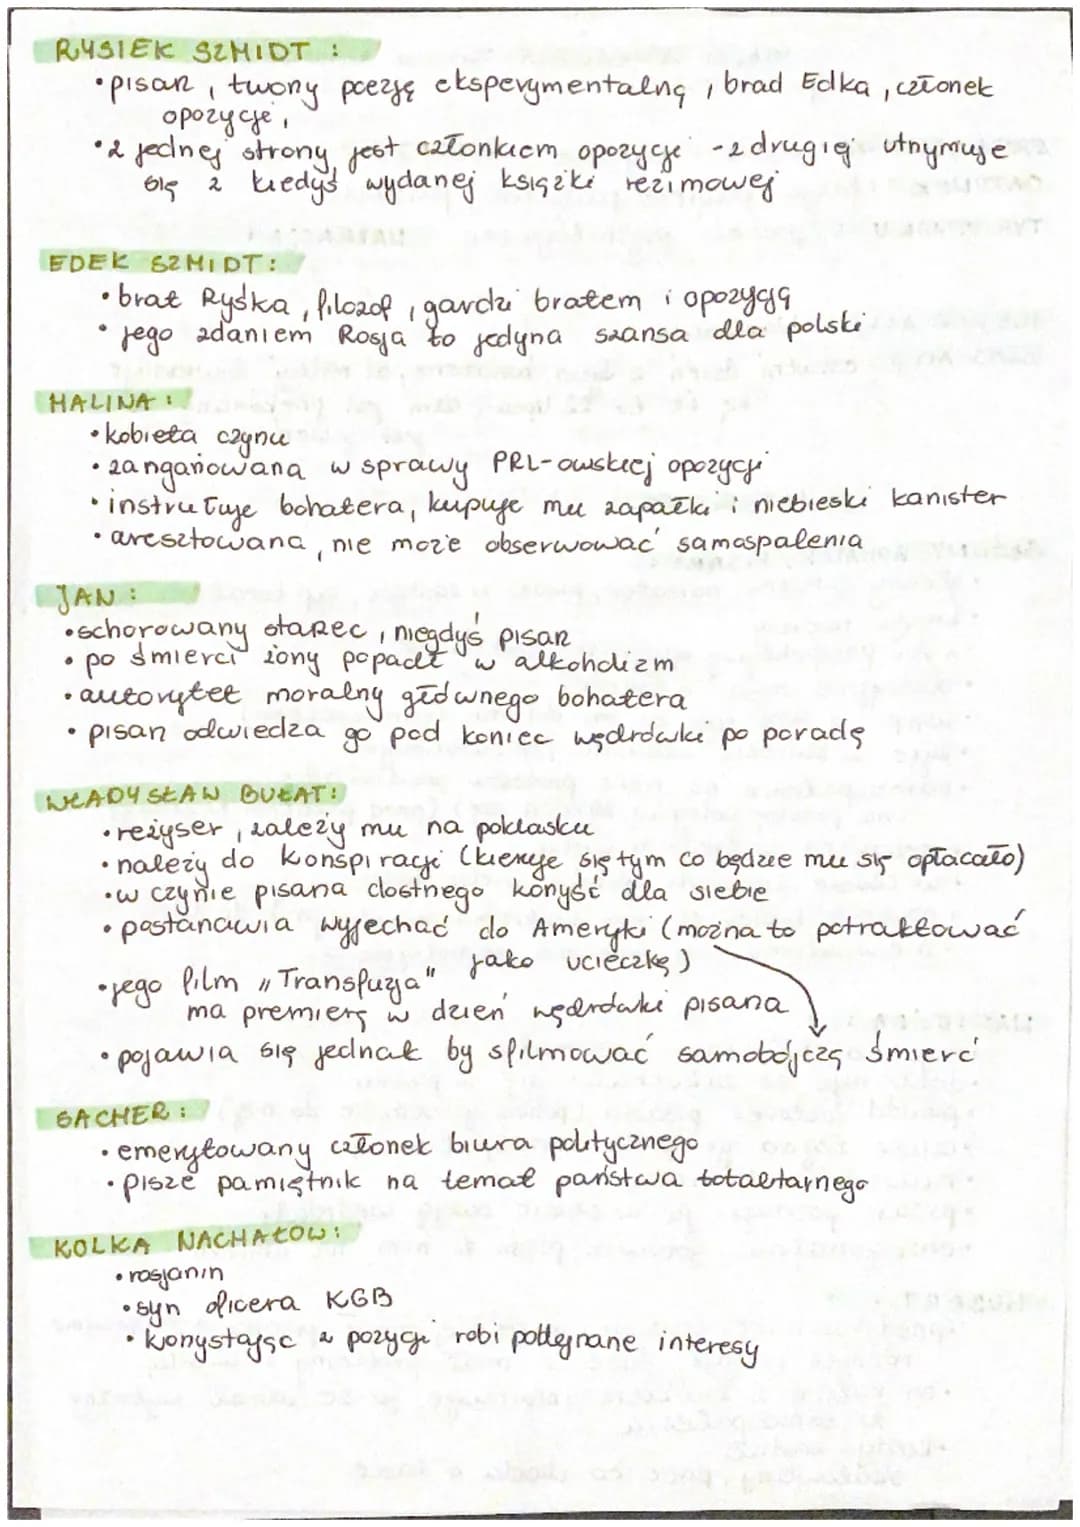 RYSIEK SZMIDT :
• pisarz, tworzy poezję eksperymentalną, brad Edka, członek
opozycje,
• z jednej strony jest członkiem opozycje - z drugiej utrzymuje
się z kiedyś wydanej książki reżimowej
EDEK SZMIDT:
• brat Ryśka, filozof, gardzi bratem i opozycją
• jego zdaniem Rosja to jedyna szansa dla polski
HALINA :
• kobieta czynu
• zangażowana w sprawy PRL-owskiej opozycji
• instrułuje bohatera, kupuje mu zapałki i niebieski kanister
• aresztowana, nie może obserwować samospalenia
JAN :
• schorowany starzec, niegdyś pisarz
• po śmierci żony popadł w alkoholizm
• autorytet moralny głównego bohatera
• pisarz odwiedza go pod koniec wędrówki po poradę
WŁADYSŁAW BUŁAT:
• reżyser, zależy mu na poklasku
• należy do konspiracji (kieruje się tym co będzie mu się opłacało)
• w czynie pisarza dostrzega korzyść dla siebie
• postanawia wyjechać do Ameryki (można to potraktować
jako ucieczkę)
• jego film „Transfuzja"
ma premierę w dzień wędrówki pisarza
• pojawia się jednak by sfilmować samobójczą śmierć
SACHER :
• emerytowany członek biura politycznego
• pisze pamiętnik na temat państwa totalitarnego
KOLKA NACHAŁOW:
• rosjanin
• syn oficera KGB
• korzystając z pozycji robi podejrzane interesy